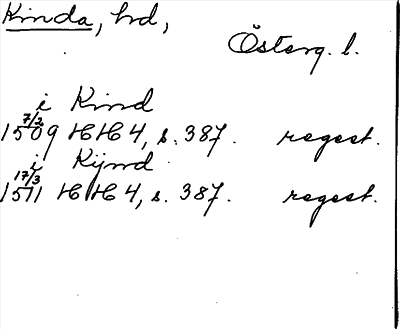 Kinda, hd,
Österg. l.
i Kind
7/2
1509 HH 4, s. 387. regest.
i Kijnd
17/3
1511 HH 4, s. 387. regest.